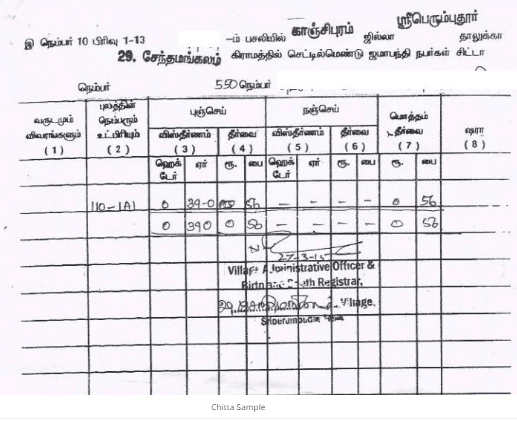 காஞ்சிபுரம் ஸ்ரீபெரும்புதூர்
இ நெம்பர் 10 பிரிவு 1-13 -ம் பசலியில் ஜில்லா தாலுக்கா
29. சேந்தமங்கலம் கிராமத்தில் செட்டில்மெண்டு ஜமாபந்தி நபர்கள் சிட்டா
நெம்பர் 550 நெம்பர்
வருடமும் விவரங்களும் புலத்தின் நெம்பரும் உட்பிரியும் புஞ்செய் நஞ்செய் மொத்தம் தீர்வை ஷரா
விஸ்தீர்ணம் தீர்வை விஸ்தீர்ணம் தீர்வை
( 1 ) ( 2 ) ( 3 ) ( 4 ) ( 5 ) ( 6 ) ( 7 ) ( 8 )
ஹெக்டேர் ஏர் ரூ. பை ஹெக்டேர் ஏர் ரூ. பை ரூ. பை
110-1A1 0 39-0 56 - - - - 0 56
0 390 0 56 - - - - 0 56
27-3-15
Village Administrative Officer &
Birth and Death Registrar,
Village.
Chitta Sample